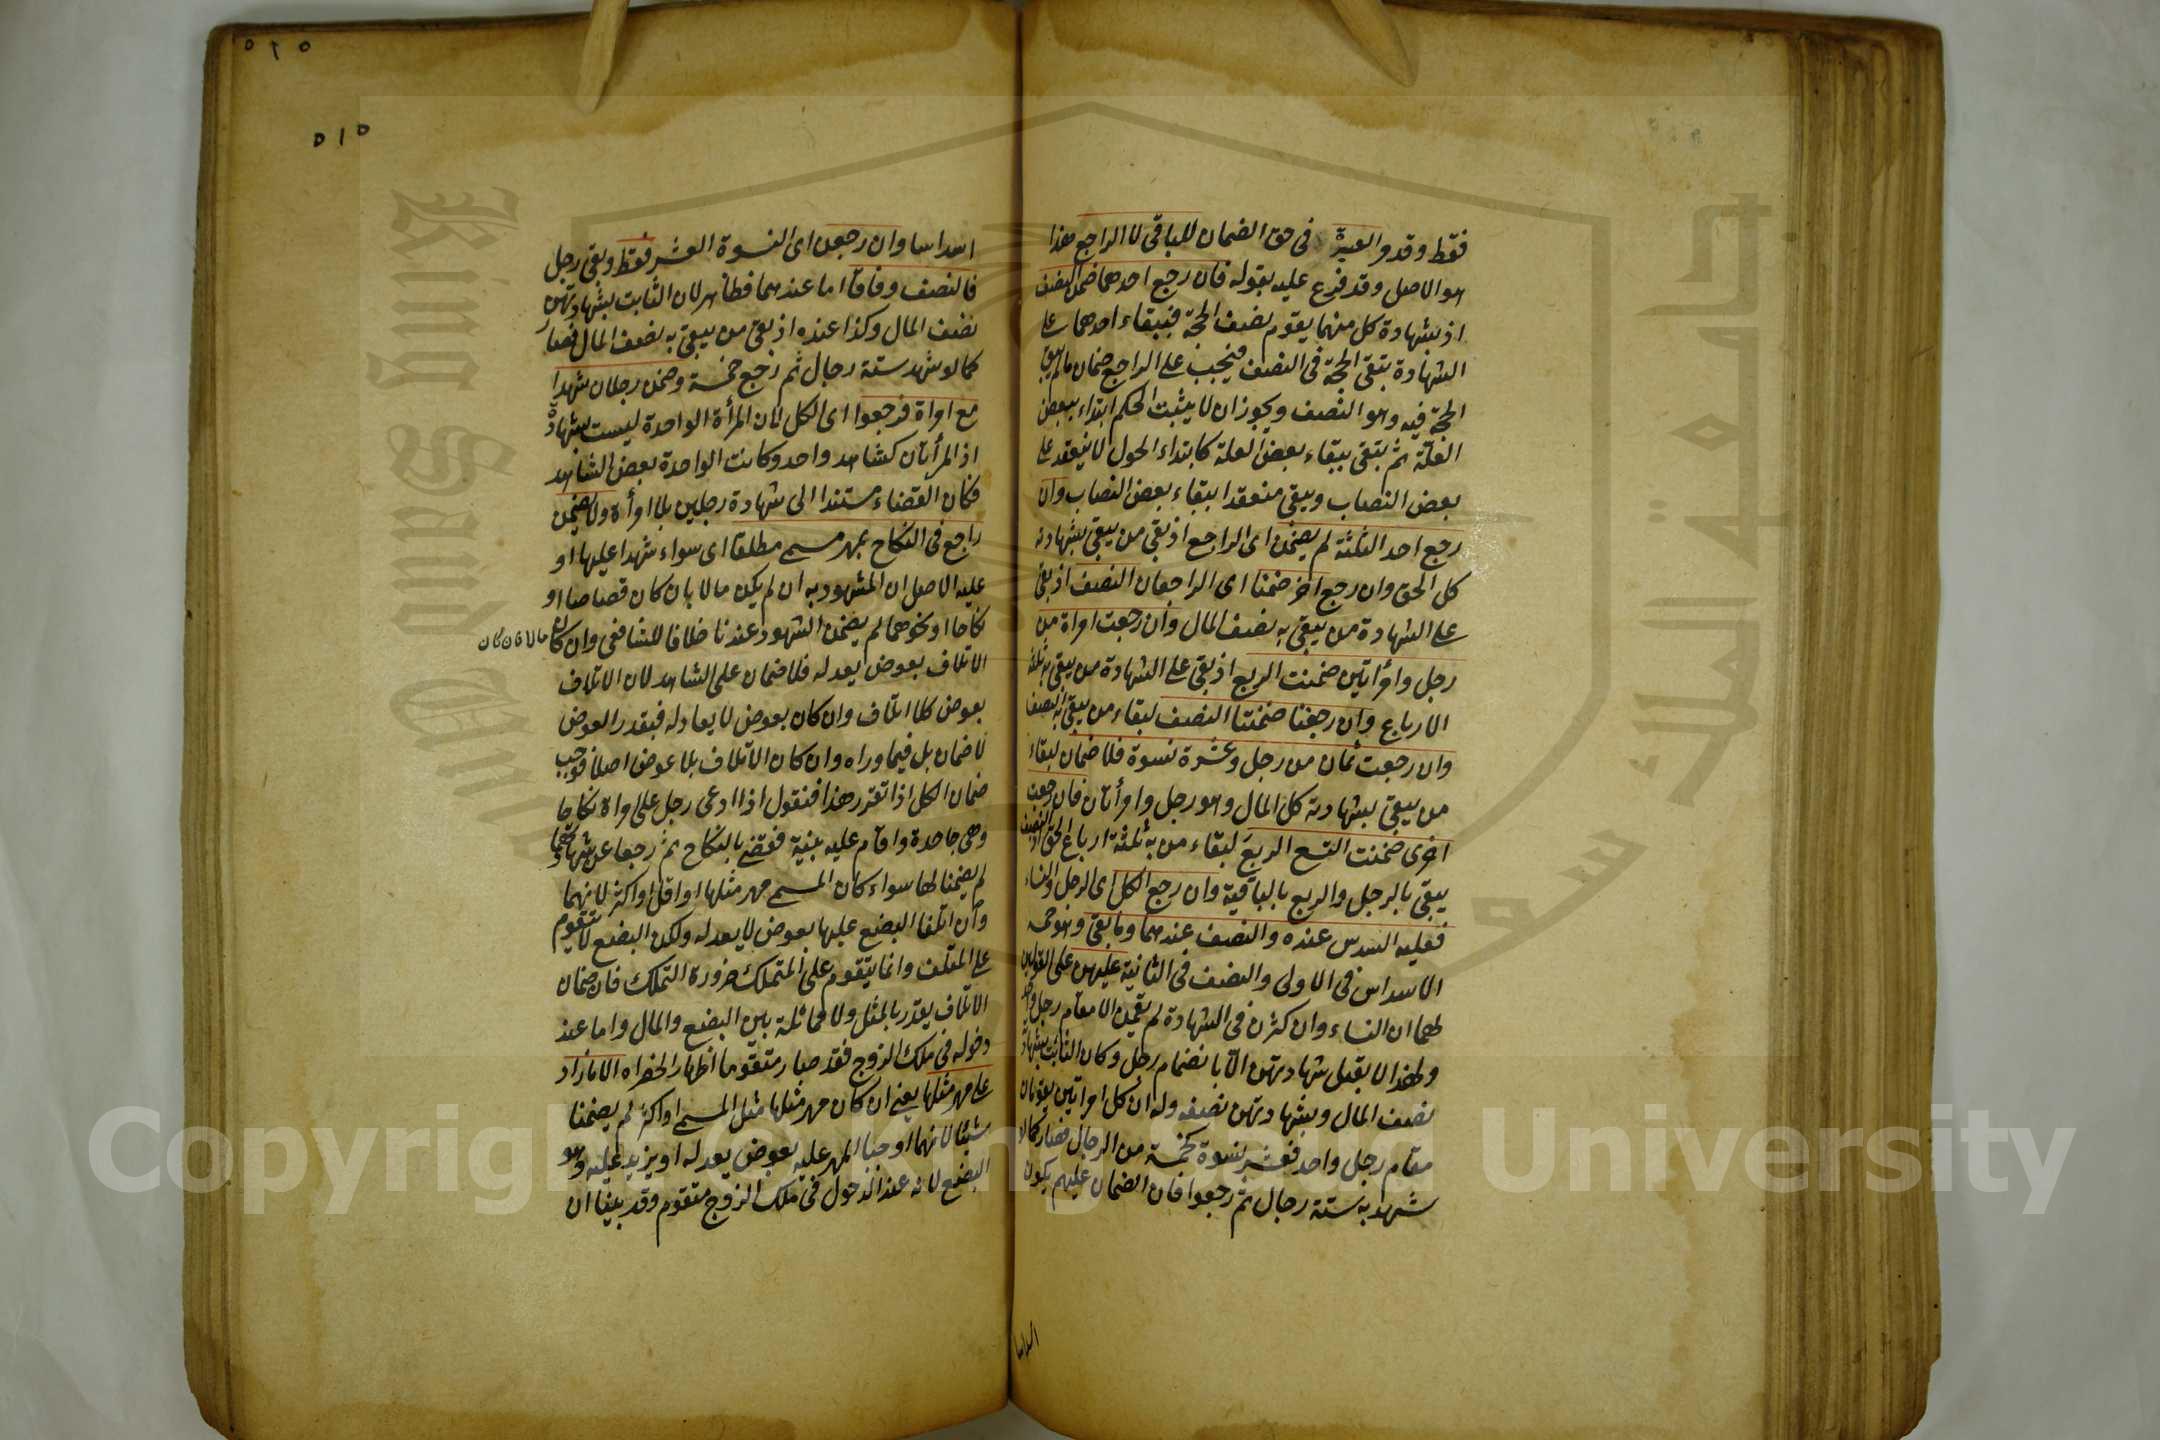 فقط وقد مر والعبرة في حق الضمان للباقي لا الراجع هذا
هو الاصل وقد فرع عليه بقوله فان رجع احدهما ضمن النصف
اذ بشهادة كل منهما يقوم نصف الحجة فببقاء احدهما على
الشهادة يبقى الحجة في النصف فيجب على الراجع ضمان مالم يبق
الحجة فيه وهو النصف ويجوز ان لا يثبت الحكم ابتداء ببعض
العلة ثم يبقى ببقاء بعض العلة كابتداء الحول لا ينعقد على
بعض النصاب ويبقى منعقدا ببقاء بعض النصاب وان
رجع احد الثلثة لم يضمن اى الراجع اذ بقى من يبقى بشهادته
كل الحق وان رجع اخر ضمنا اى الراجعان النصف اذ بقى
على الشهادة من يبقى به نصف المال وان رجعت امراة من
رجل وامرأتين ضمنت الربع اذ بقى على الشهادة من يبقى به ثلثة
الارباع وان رجعتا ضمنتا النصف لبقاء من يبقى به النصف
وان رجعت ثمان من رجل وعشرة نسوة فلا ضمان لبقاء
من يبقى بشهادته كل المال وهو رجل وامرأتان فان رجعت
اخرى ضمنت التسع الربع لبقاء من به ثلثة ارباع الحق اذ النصف
يبقى بالرجل والربع بالباقية وان رجع الكل اى الرجل والنساء
فعليه السدس عنده والنصف عندهما وما بقى وهو خمسة
الاسداس في الاولى والنصف في الثانية عليهن على القولين
لهما ان النساء وان كثرن في الشهادة لم يقمن الا مقام رجل واحد
ولهذا لا يقبل شهادتهن الا بانضمام رجل وكان الثابت بشهادته
نصف المال وبشهادتهن نصفه وله ان كل امراتين يقومان
مقام رجل واحد فعشر نسوة كخمسة من الرجال فصار كما لو
شهد به ستة رجال ثم رجعوا فان الضمان عليهم يكون
اسداسا
٥١٥
٥١٥
اسداسا وان رجعن اى النسوة العشر فقط وبقى رجل
فالنصف وفاقا اما عندهما فظاهر لان الثابت بشهادتهن
نصف المال وكذا عنده اذ بقى من يبقى به نصف المال فصار
كما لو شهد ستة رجال ثم رجع خمسة وضمن رجلان شهدا
مع امراة فرجعوا اى الكل لان المرأة الواحدة ليست بشهادة
اذ المرأتان كشاهد واحد وكانت الواحدة بعض الشاهد
فكان القضاء مستندا الى شهادة رجلين بلا امرأة ولا يضمن
راجع في النكاح بمهر مسمى مطلقا اى سواء شهدا عليها او
عليه الاصل ان المشهود به ان لم يكن مالا بان كان قصاصا او
نكاحا او نحوهما لم يضمن الشهود عندنا خلافا للشافعي وان كان مالا فان كان
الاتلاف بعوض يعدله فلا ضمان على الشاهد لان الاتلاف
بعوض كلا اتلاف وان كان بعوض لا يعادله فبقدر العوض
لا ضمان بل فيما وراه وان كان الاتلاف بلا عوض اصلا فوجب
ضمان الكل اذا تقرر هذا فنقول اذا ادعى رجل على امراة نكاحا
وهي جاحدة واقام عليه بينة فقضى بالنكاح ثم رجعا عن شهادتهما
لم يضمنا لها سواء كان المسمى مهر مثلها او اقل او اكثر لانهما
وان اتلفا البضع عليها بعوض لا يعدله ولكن البضع لا يتقوم
على المتلف وانما يتقوم على المتملك ضرورة التملك فان ضمان
الاتلاف يقدر بالمثل ولا مماثلة بين البضع والمال واما عند
دخوله في ملك الزوج فقد صار متقوما اظهارا لخطره الا ما زاد
على مهر مثلها يعني ان كان مهر مثلها مثل المسمى او اكثر لم يضمنا
شيئا لانهما اوجبا المهر عليه بعوض يعدله او يزيد عليه وهو
البضع لانه عند الدخول في ملك الزوج متقوم وقد بينا ان